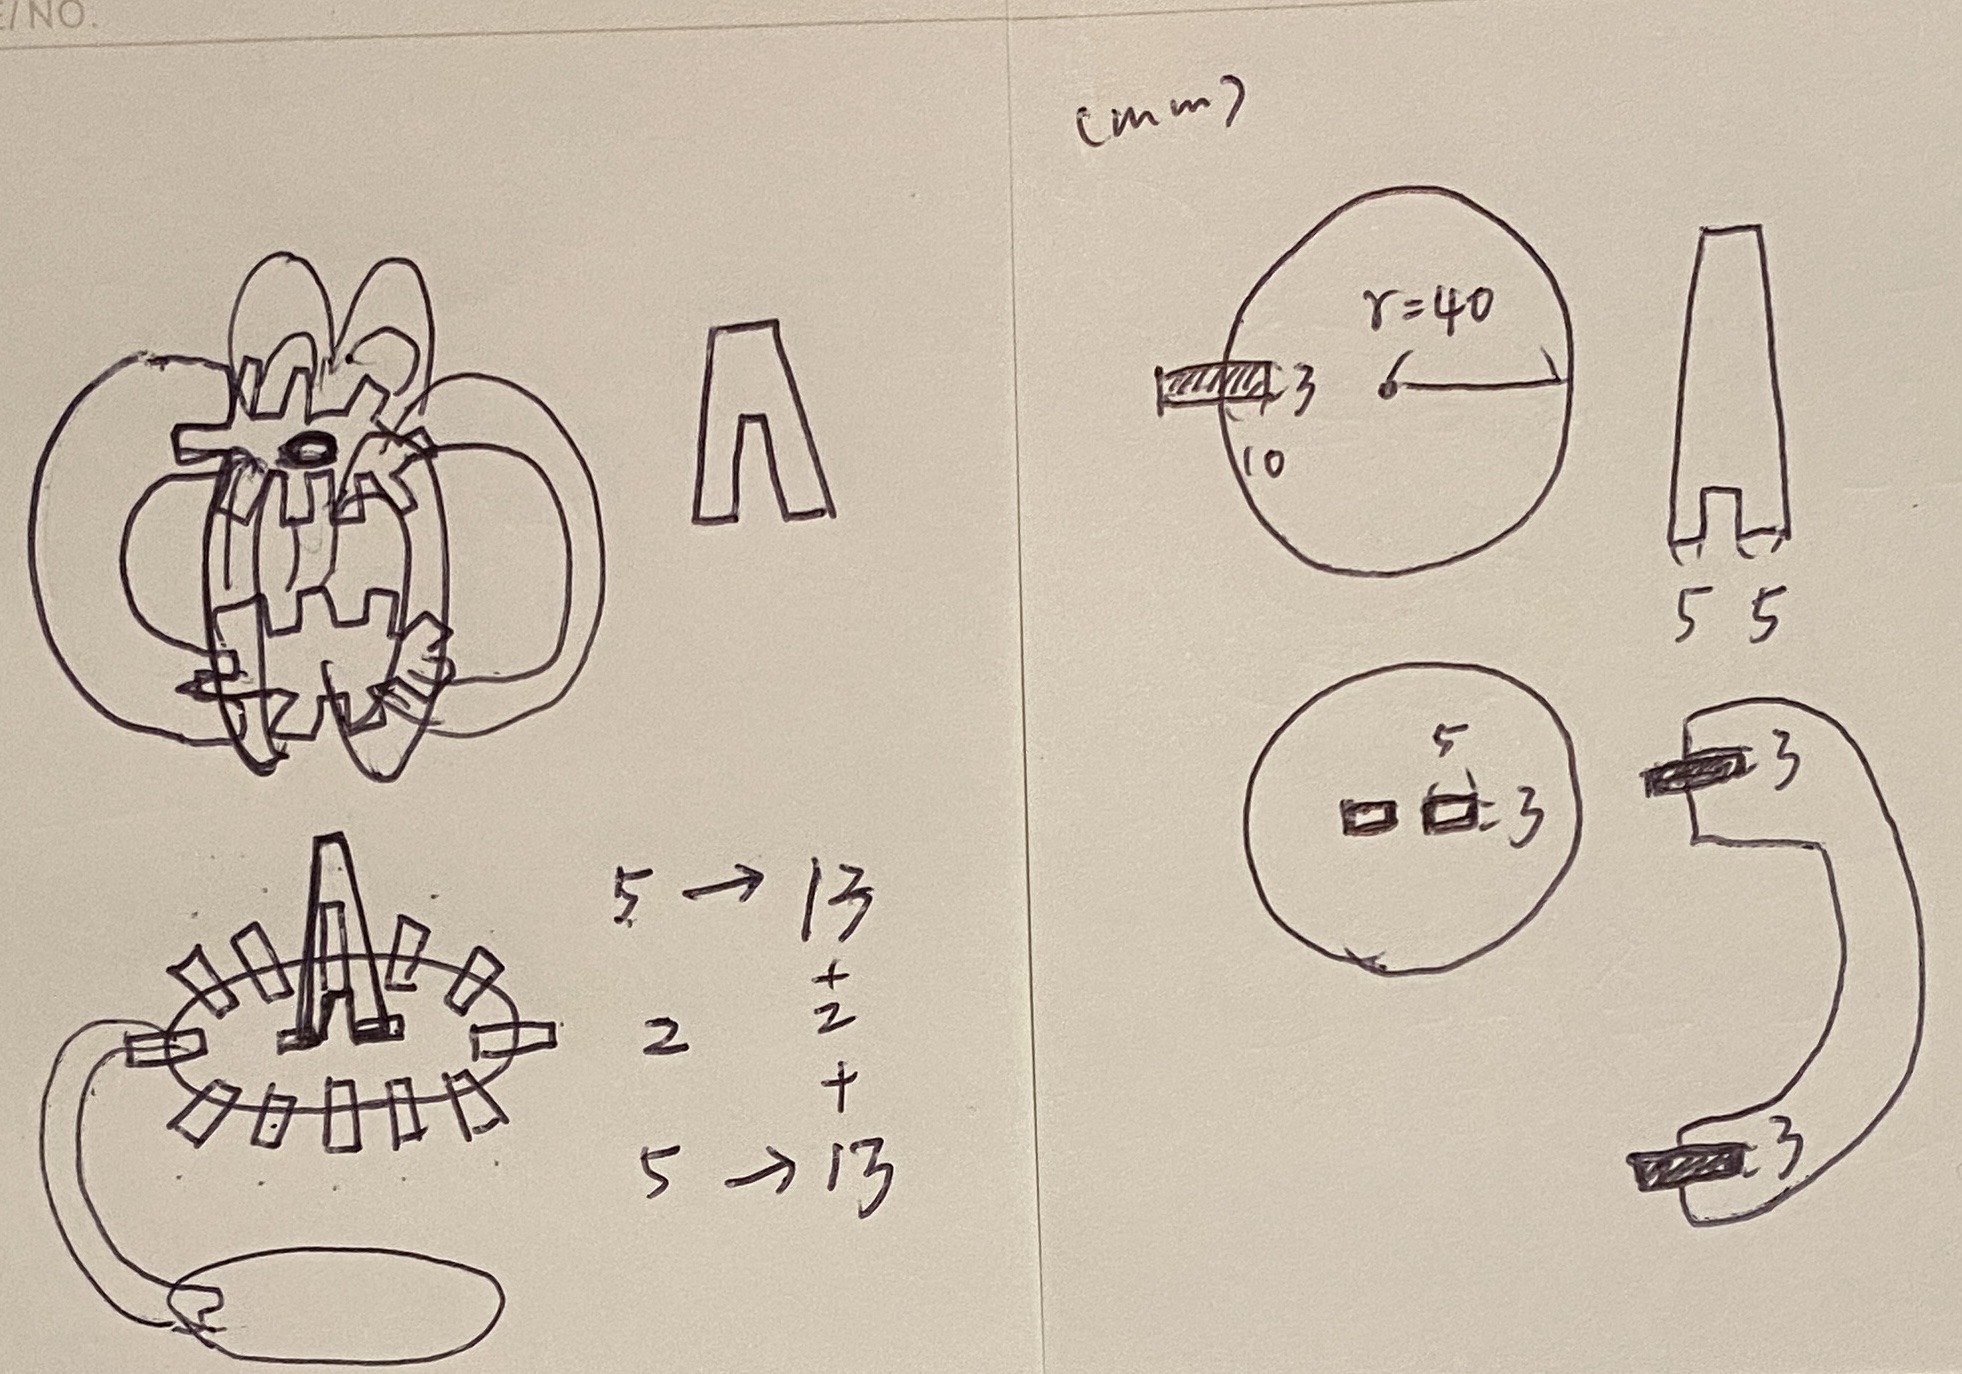 E/NO.
5 → 13
+
2 2
+
5 → 13
(mm)
r=40
3
10
5 5
5
3
3
3